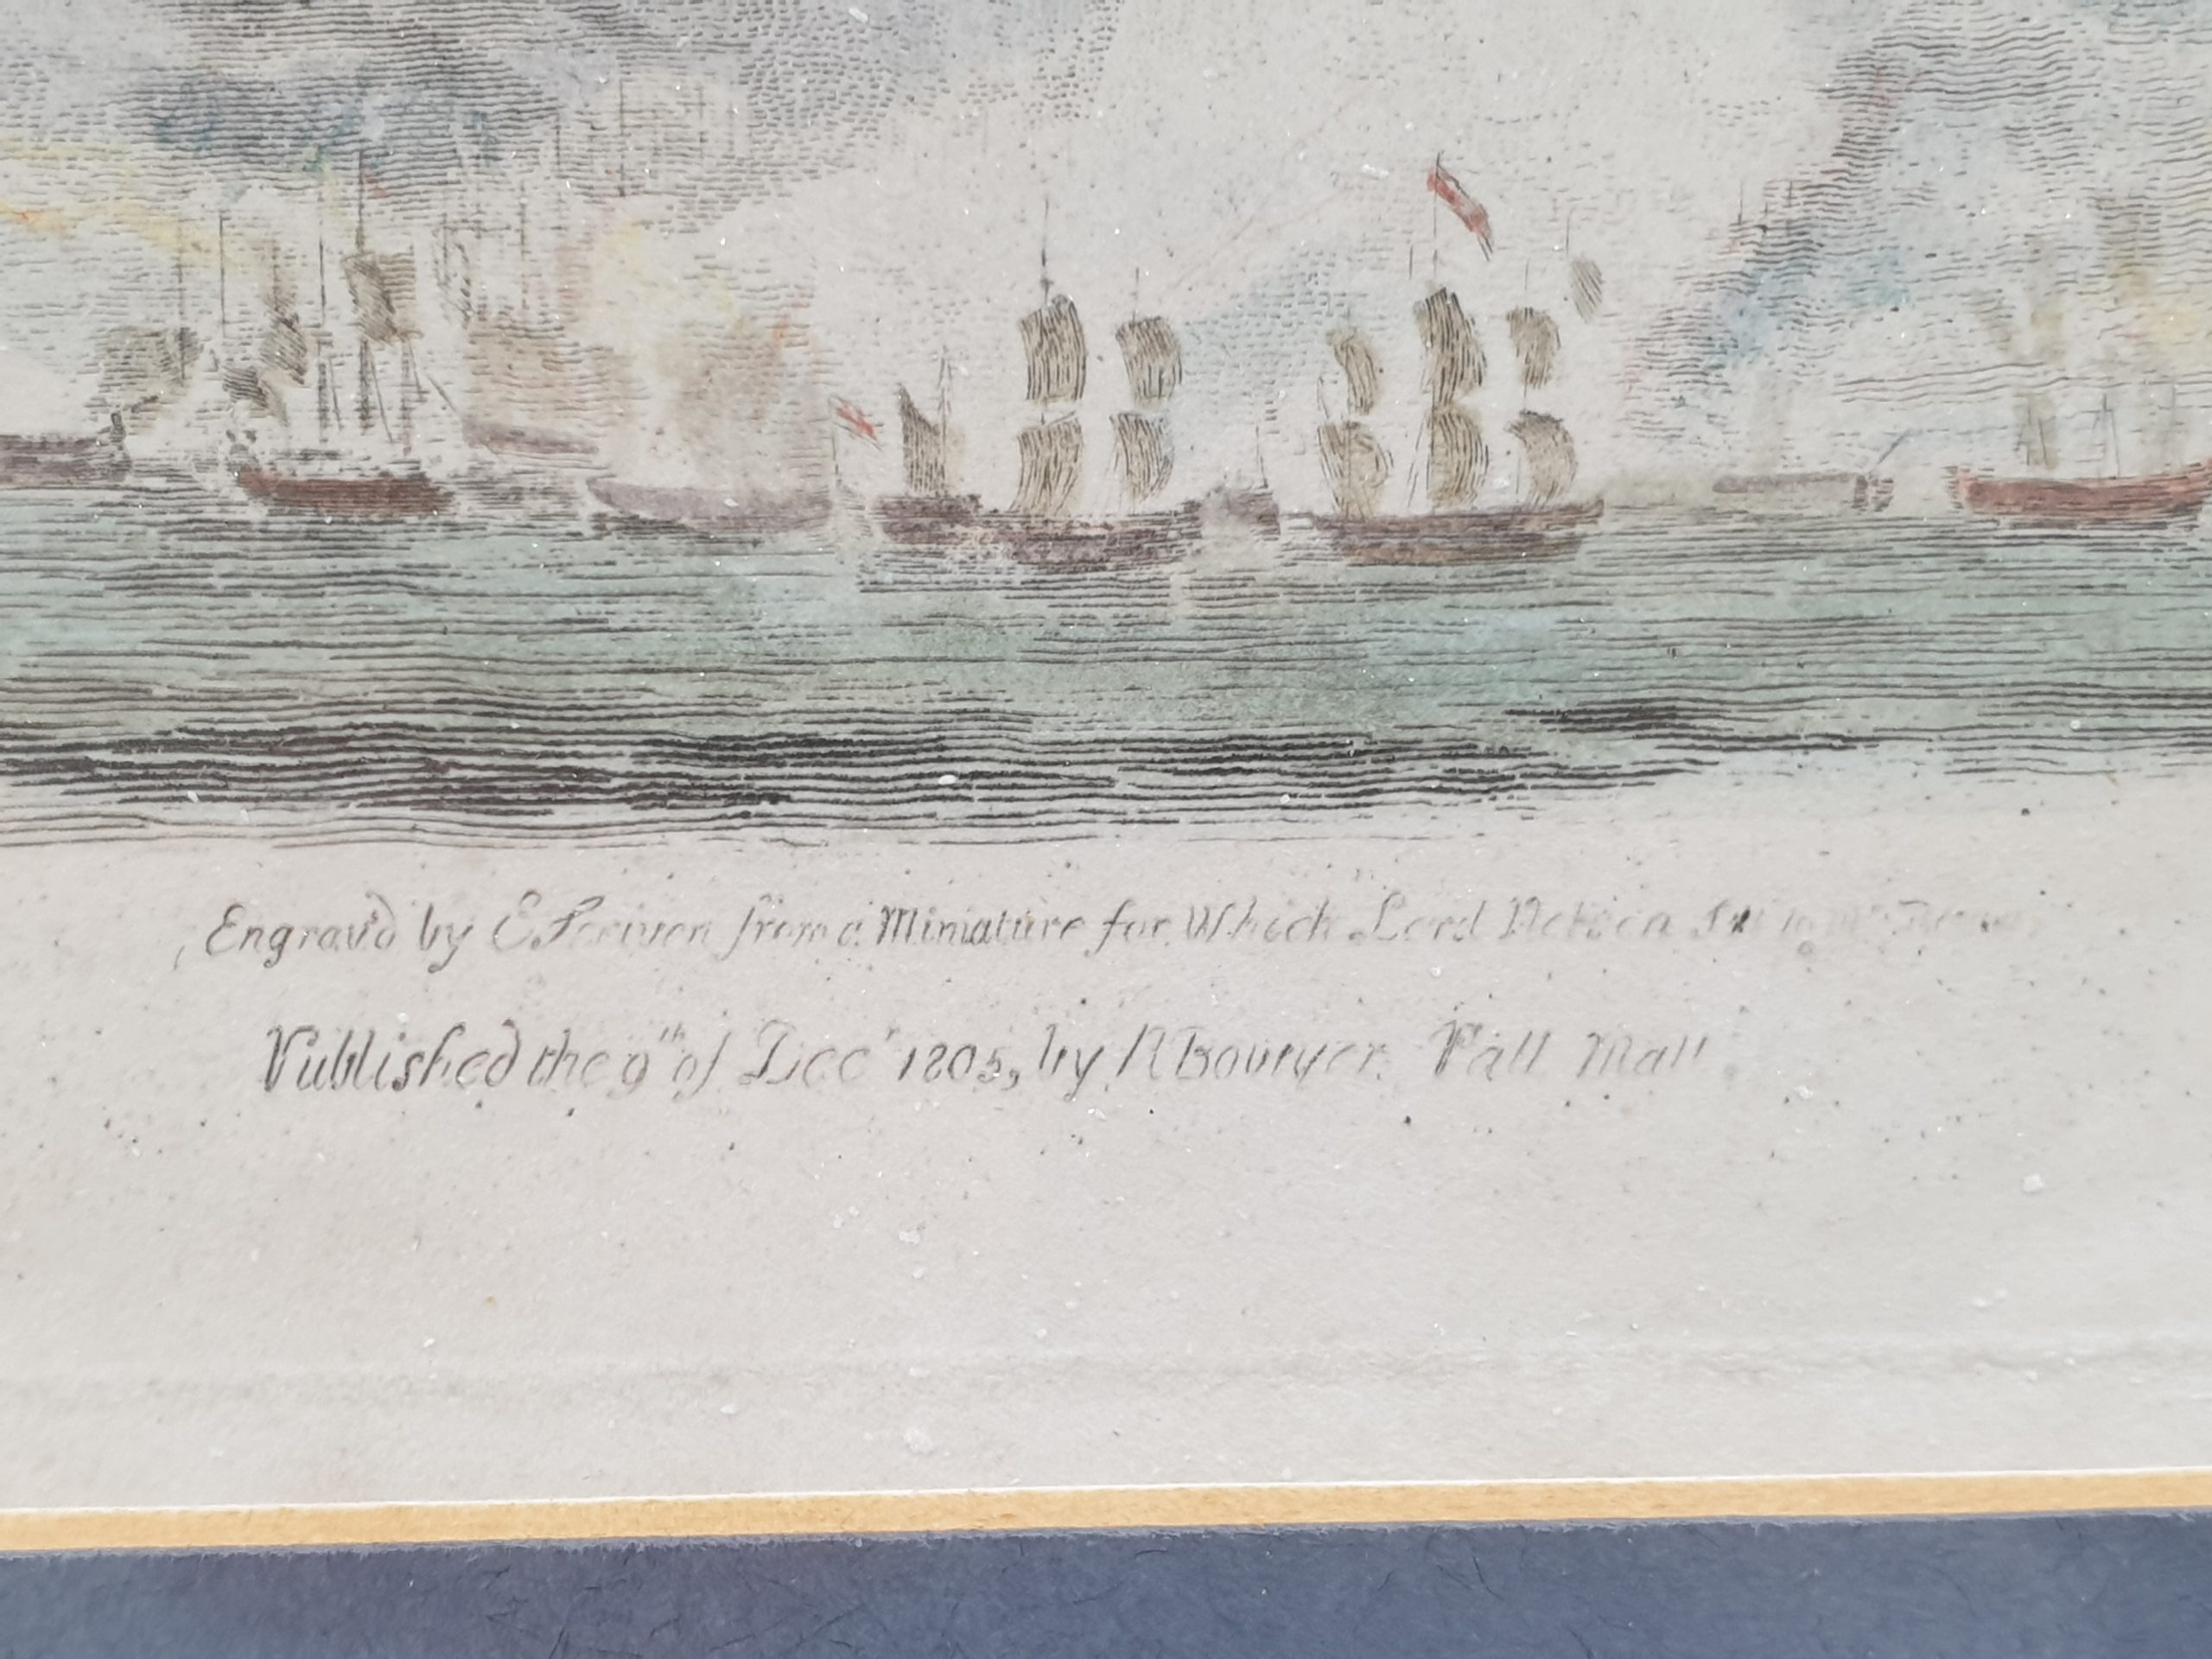 Engrav'd by E Scriven from a Miniature for Which Lord Nelson Sat to Mr
Published the 9th of Decr 1805, by R Bowyer. Pall Mall